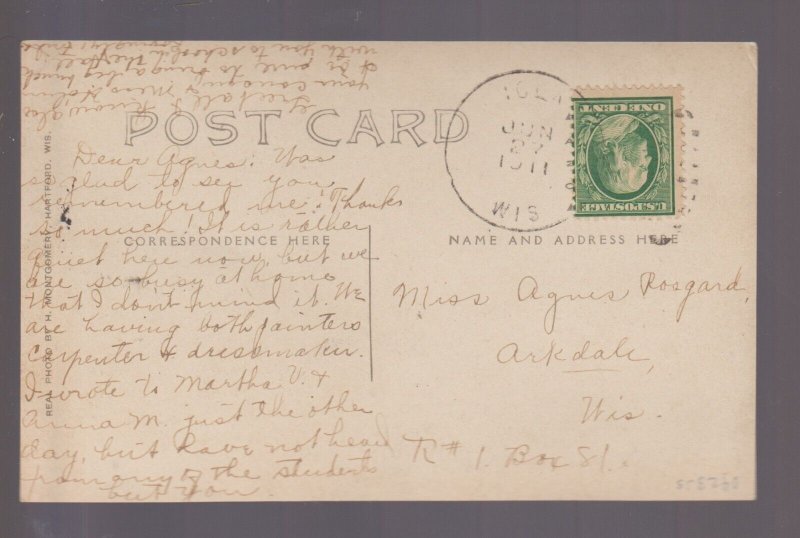 POST CARD
CORRESPONDENCE HERE
NAME AND ADDRESS HERE
REAL PHOTO BY H. MONTGOMERY, HARTFORD, WIS.
JUN
27
1911
WIS
U.S. POSTAGE
ONE CENT
Dear Agnes: Was
so glad to see you
remembered me. Thanks
so much! It is rather
quiet here now, but we
are so busy at home
that I don't mind it. We
are having both painters
carpenter & dressmaker.
I wrote to Martha V. &
Anna M. just the other
day, but have not heard
from any of the students
but you.
with you to school in the fall
Miss Agnes Rosgard,
Arkdale,
Wis.
R# 1. Box 81.